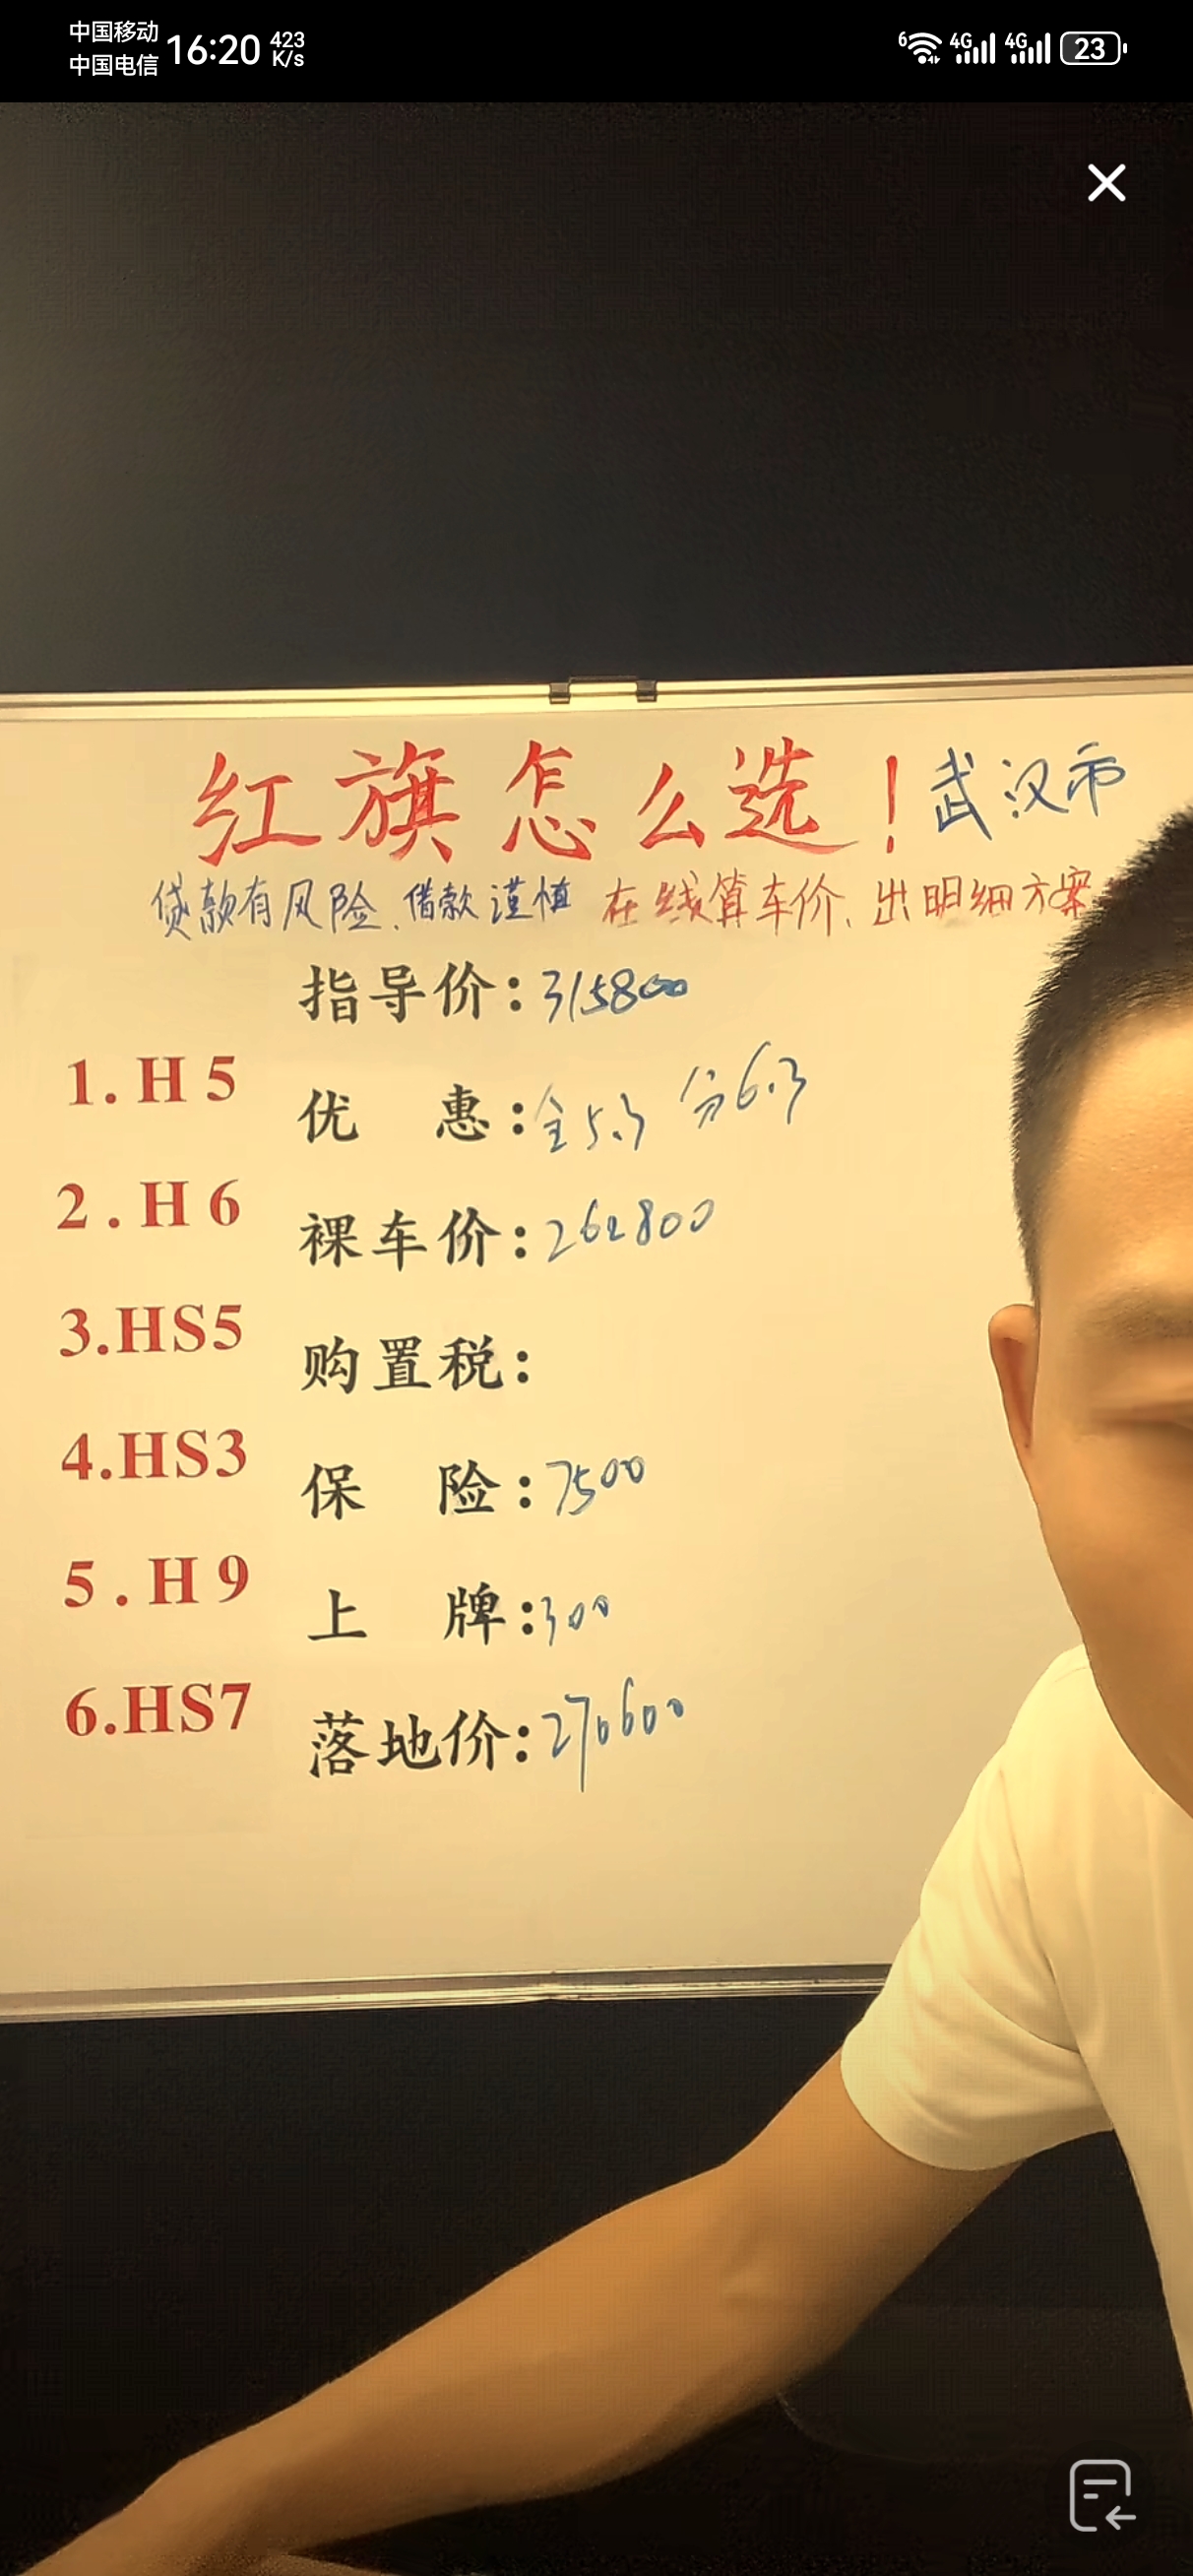 中国移动
中国电信
16:20
423
K/s
6
4G
4G
23
红旗怎么选！武汉市
贷款有风险.借款谨慎 在线算车价、出明细方案
指导价:315800
1.H5
优惠:全5.3 分6.3
2.H6
裸车价:262800
3.HS5
购置税:
4.HS3
保险:7500
5.H9
上牌:300
6.HS7
落地价:270600